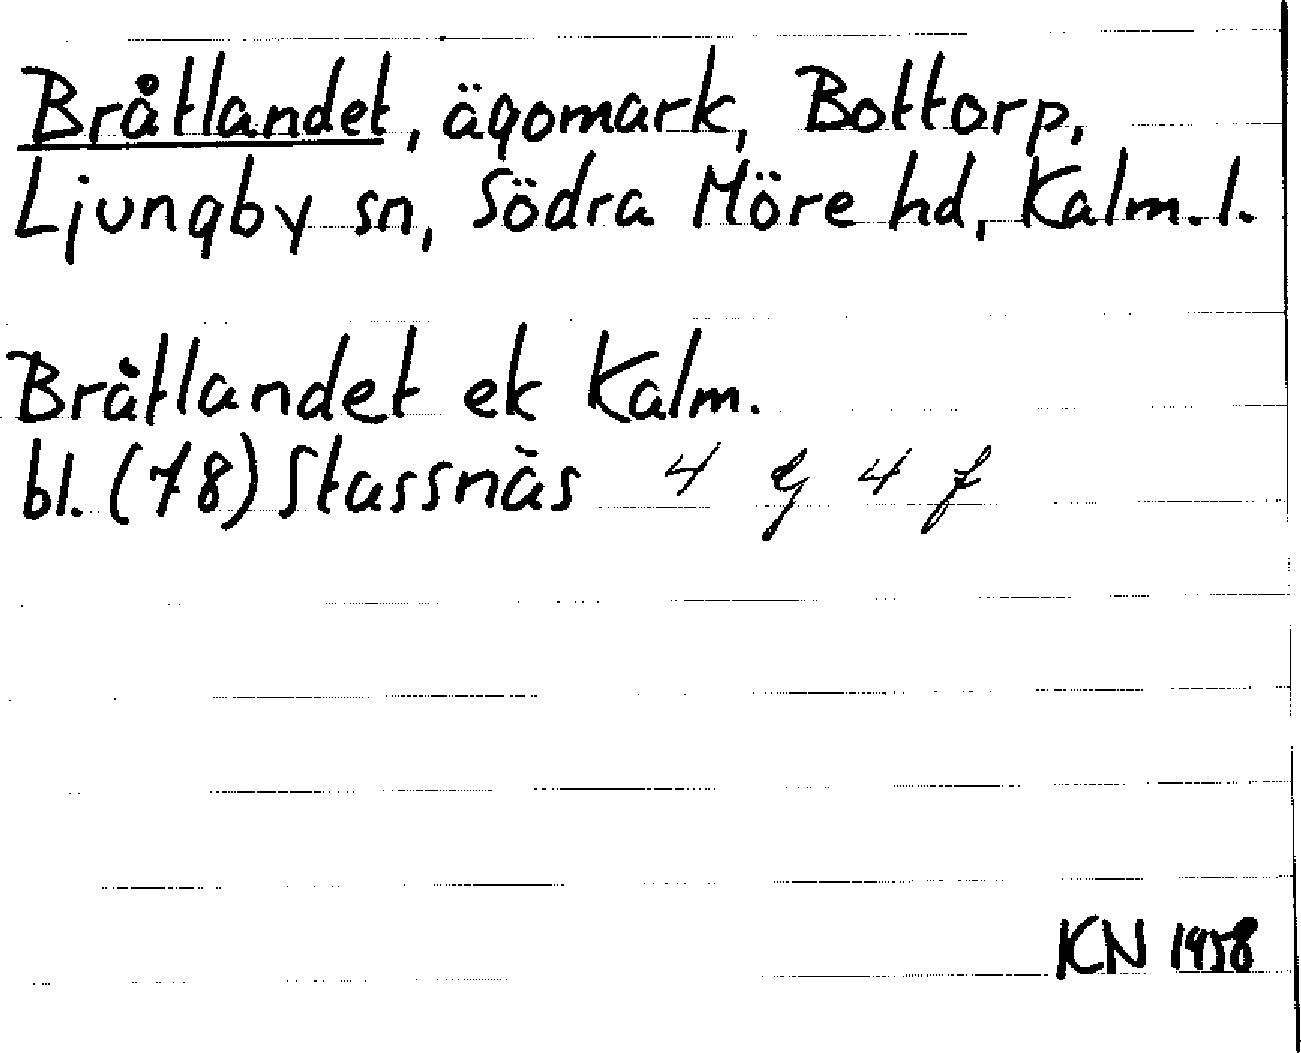 Bråtlandet, ägomark, Bottorp,
Ljungby sn, Södra Möre hd, Kalm. l.
Bråtlandet ek Kalm.
bl. (78) Stassnäs 4 G 4 f
KN 1958